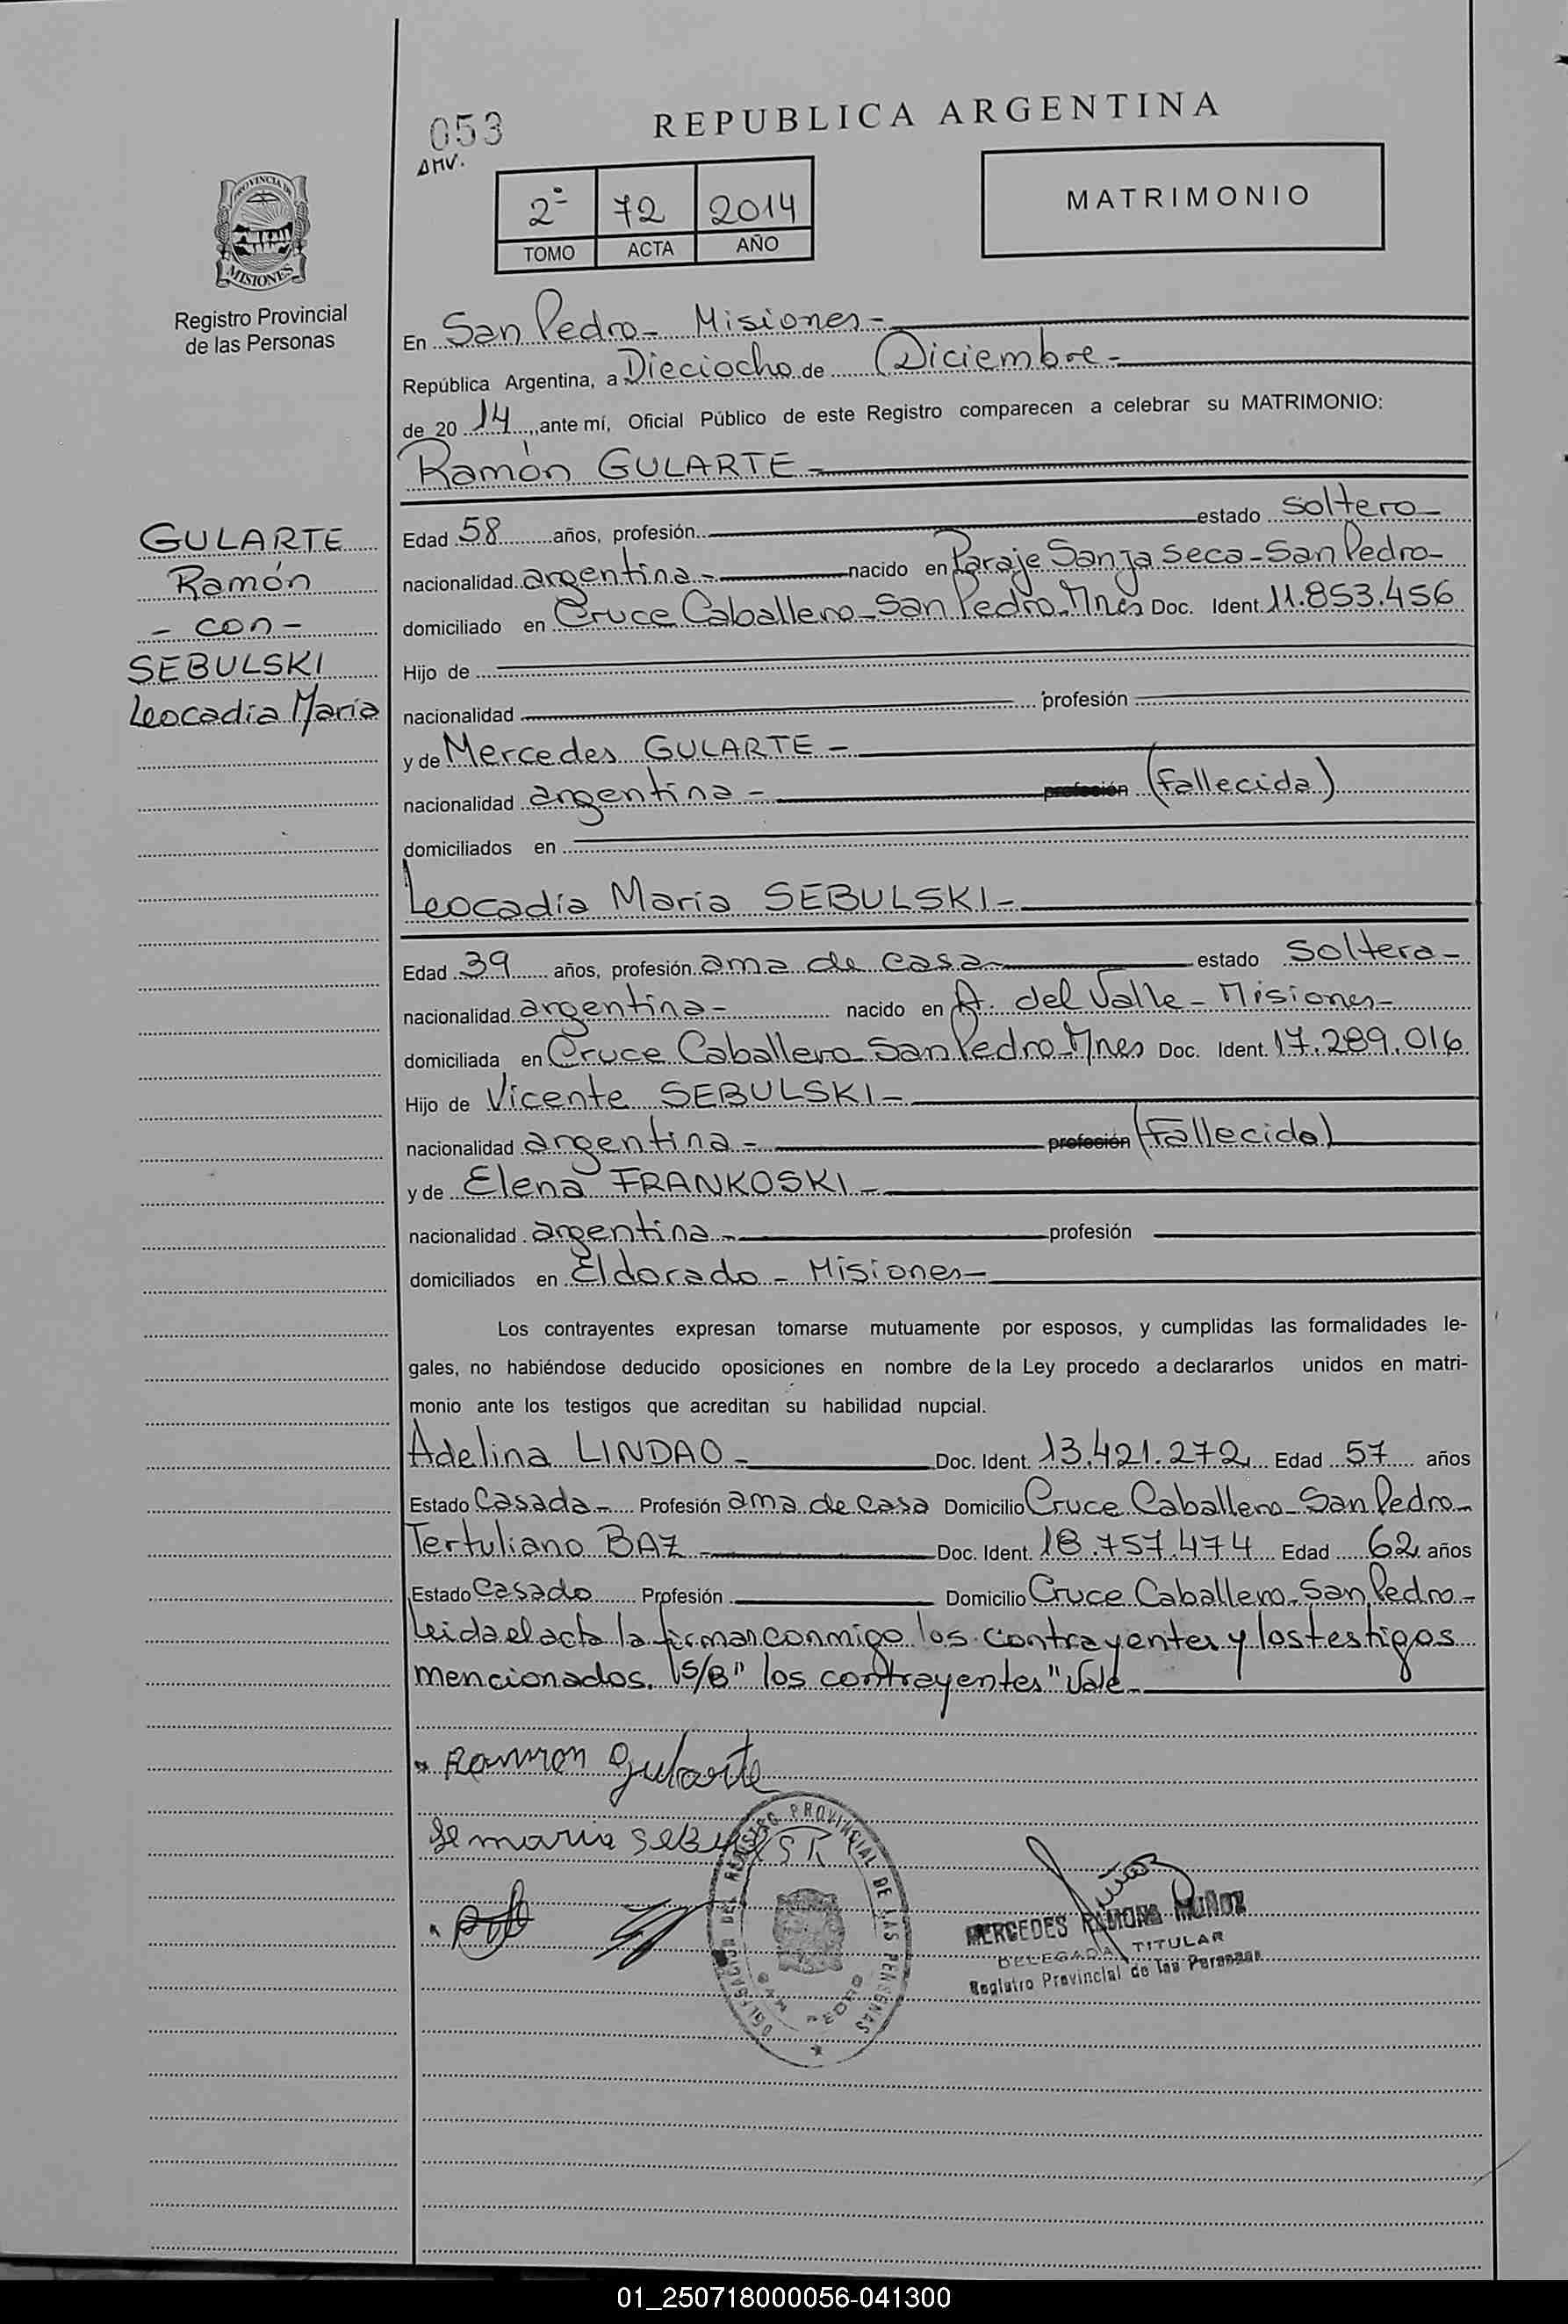 053
REPUBLICA ARGENTINA
AMV.
2º 72 2014
TOMO ACTA AÑO
MATRIMONIO
PROVINCIA DE
MISIONES
Registro Provincial
de las Personas
En San Pedro - Misiones -
República Argentina, a Dieciocho de Diciembre -
de 20 14, ante mí, Oficial Público de este Registro comparecen a celebrar su MATRIMONIO:
Ramón GULARTE -
GULARTE
Ramón
- con -
SEBULSKI
Leocadia María
Edad 58 años, profesión estado soltero -
nacionalidad argentina - nacido en Paraje Sanja Seca - San Pedro -
domiciliado en Cruce Caballero - San Pedro - Mnes Doc. Ident. 11.853.456
Hijo de
nacionalidad profesión
y de Mercedes GULARTE -
nacionalidad argentina - profesión (fallecida)
domiciliados en
Leocadia María SEBULSKI -
Edad 39 años, profesión ama de casa - estado soltera -
nacionalidad argentina - nacido en A. del Valle - Misiones -
domiciliada en Cruce Caballero San Pedro - Mnes Doc. Ident. 17.289.016
Hijo de Vicente SEBULSKI -
nacionalidad argentina - profesión (fallecido)
y de Elena FRANKOSKI -
nacionalidad argentina - profesión
domiciliados en Eldorado - Misiones -
Los contrayentes expresan tomarse mutuamente por esposos, y cumplidas las formalidades le-
gales, no habiéndose deducido oposiciones en nombre de la Ley procedo a declararlos unidos en matri-
monio ante los testigos que acreditan su habilidad nupcial.
Adelina LINDAO - Doc. Ident. 13.421.272 Edad 57 años
Estado Casada - Profesión ama de casa Domicilio Cruce Caballero - San Pedro -
Tertuliano BAZ - Doc. Ident. 18.757.474 Edad 62 años
Estado Casado Profesión Domicilio Cruce Caballero - San Pedro -
Leida el acta la firman conmigo los contrayentes y los testigos
mencionados. "S/B" los contrayentes" Vale -
Ramon Gularte
maria
DELEGACION DEL REGISTRO PROVINCIAL DE LAS PERSONAS
SAN PEDRO
MERCEDES RAMONA MUÑOZ
DELEGADA TITULAR
Registro Provincial de las Personas
01_250718000056-041300